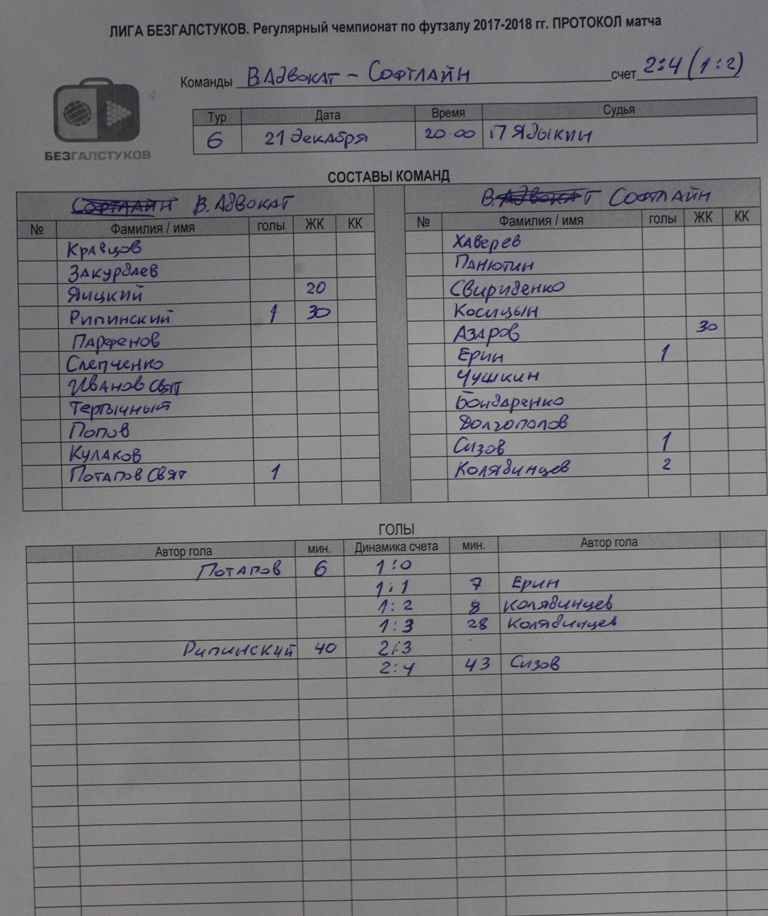 ЛИГА БЕЗГАЛСТУКОВ. Регулярный чемпионат по футзалу 2017-2018 гг. ПРОТОКОЛ матча
Команды В Адвокат – Софтлайн счет 2:4 (1:2)
БЕЗГАЛСТУКОВ
Тур Дата Время Судья
6 21 декабря 20-00 П Ядыкин
СОСТАВЫ КОМАНД
Софтлайн В. Адвокат
№ Фамилия / имя голы ЖК КК
Кравцов
Закурдаев
Яицкий 20
Рипинский 1 30
Парфенов
Слепченко
Иванов свят
Тертычный
Попов
Кулаков
Потапов свят 1
В.Адвокат Софтлайн
№ Фамилия / имя голы ЖК КК
Хаверев
Панютин
Свириденко
Косицын
Азаров 30
Ерин 1
Чушкин
Бондаренко
Долгополов
Сизов 1
Колябинцев 2
ГОЛЫ
Автор гола мин. Динамика счета мин. Автор гола
Потапов 6 1:0
1:1 7 Ерин
1:2 8 Колябинцев
1:3 28 Колябинцев
Рипинский 40 2:3
2:4 43 Сизов